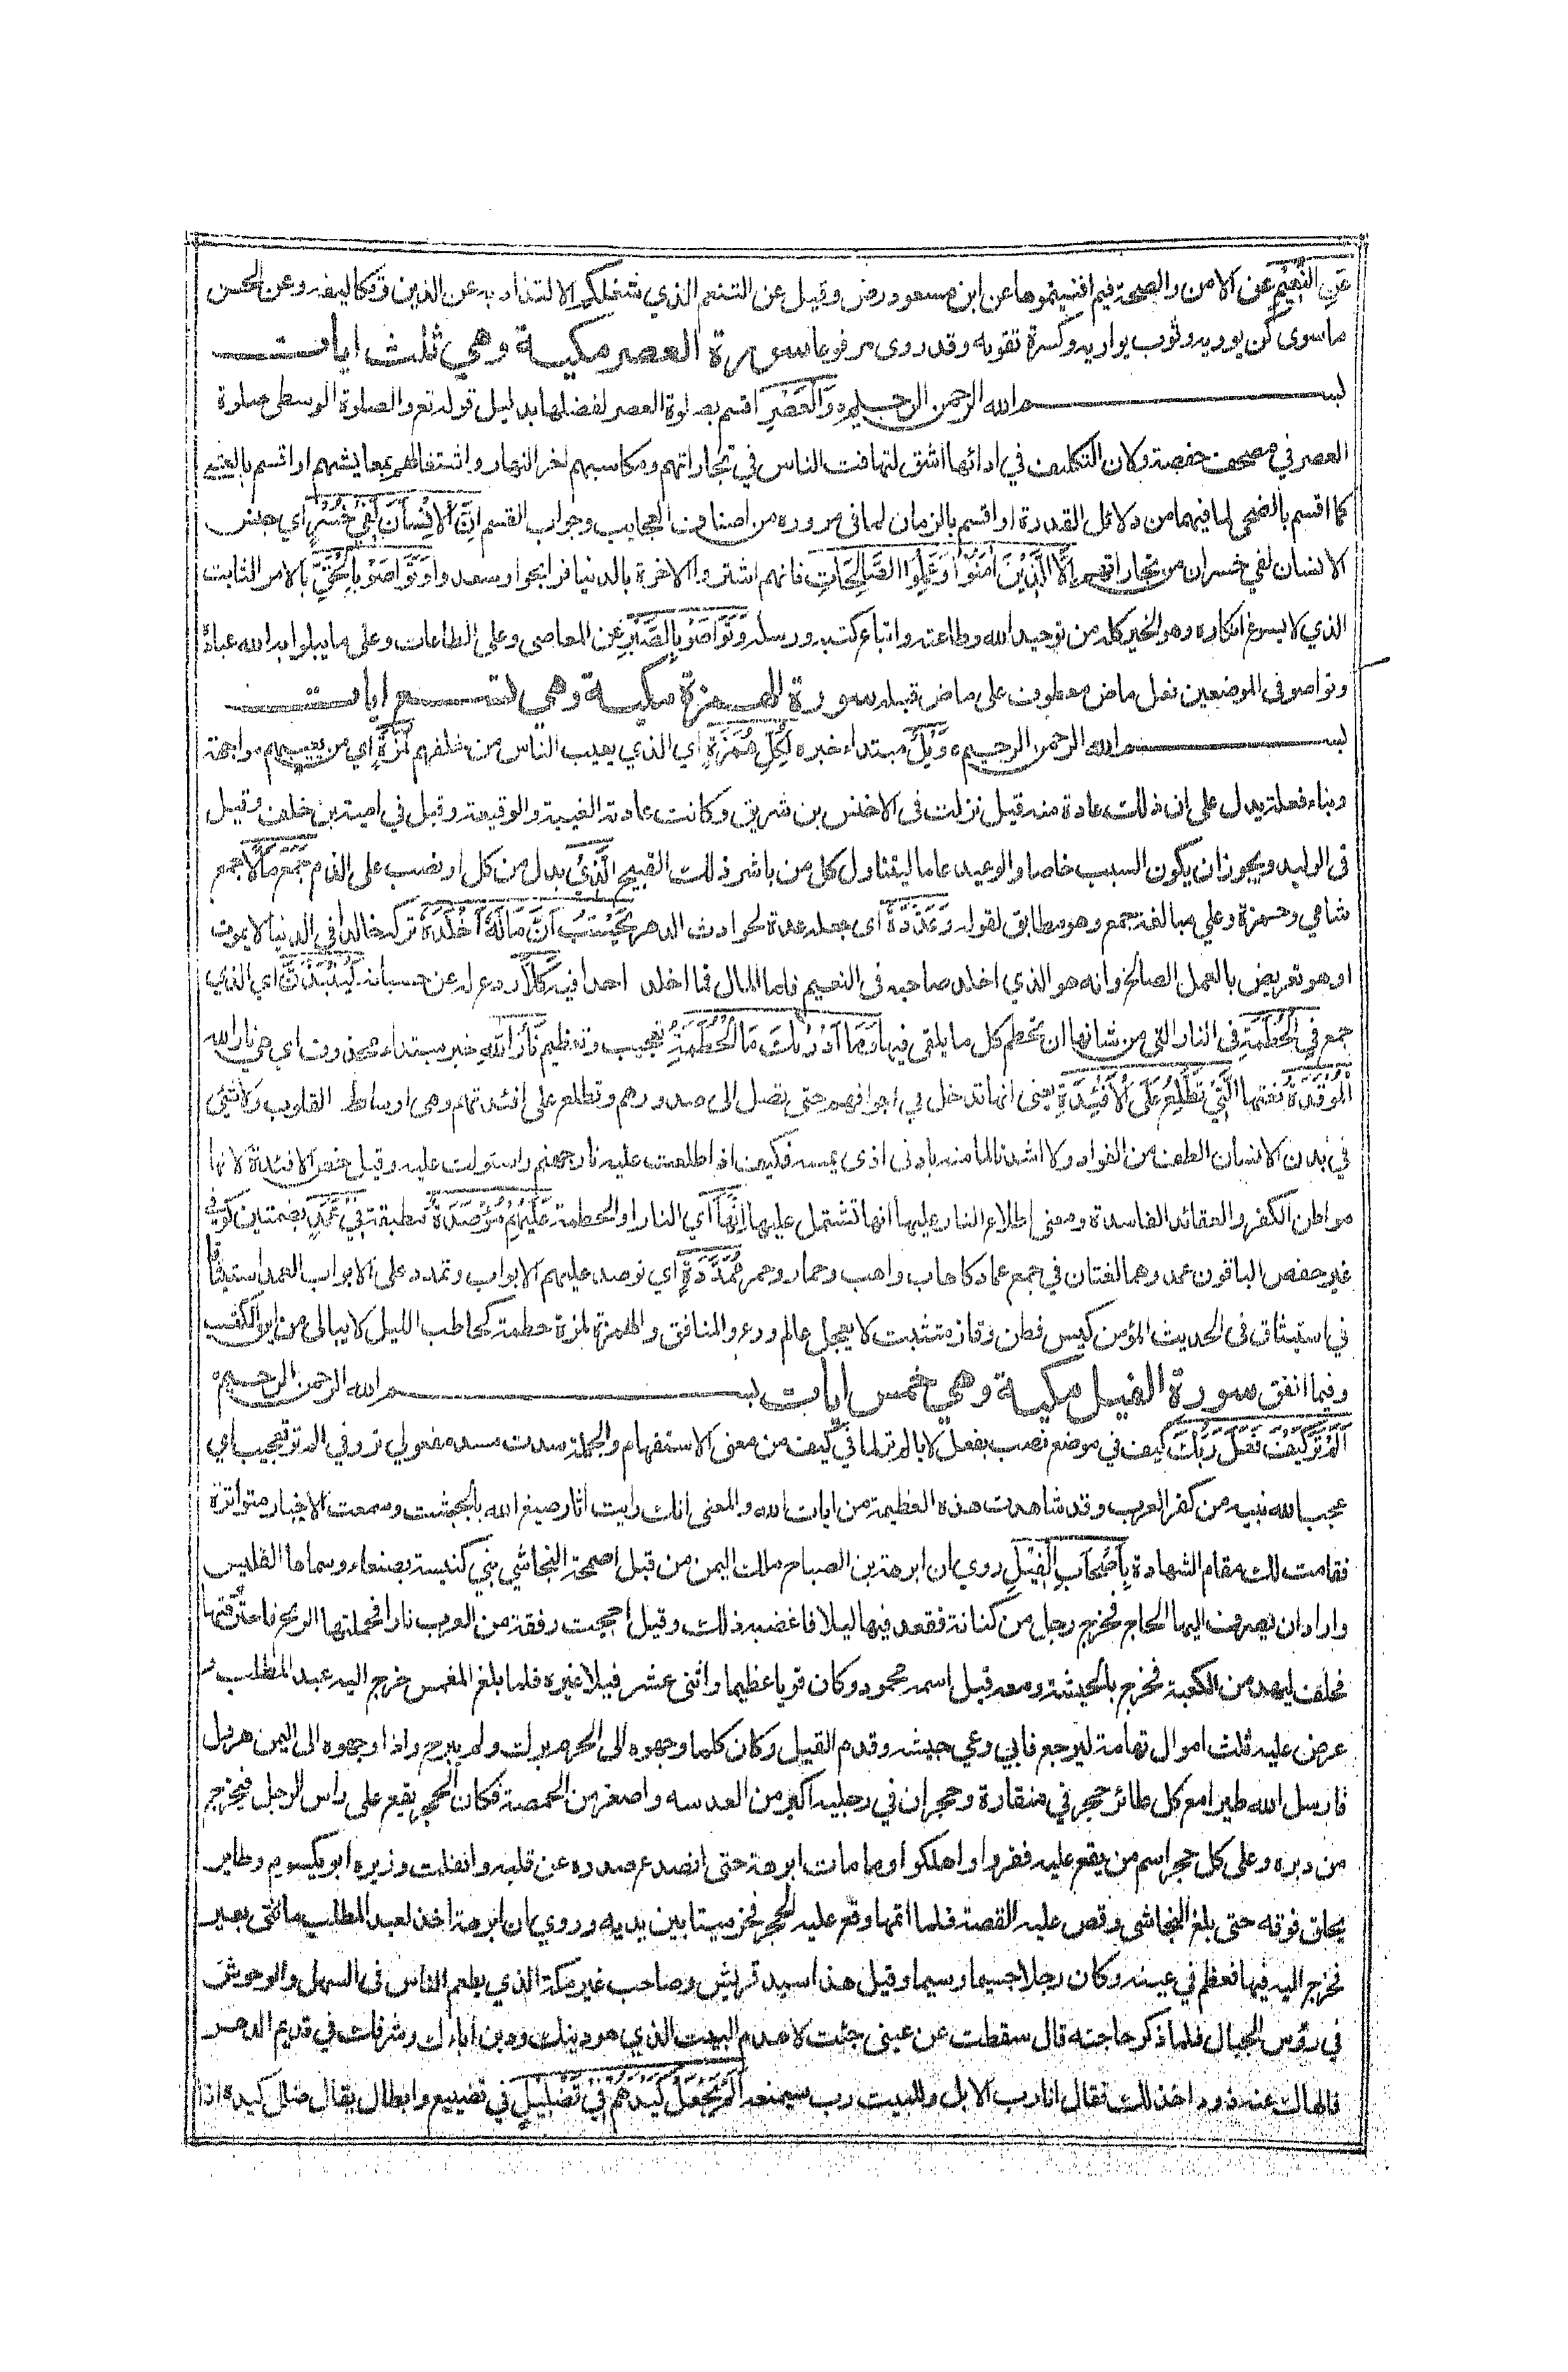 عَنِ النَّعِيْمِ عن الامن والصحة فيم افنيتموها عن ابن مسعود رض وقيل عن التنعم الذي شغلكم الالتذاذ به عن الدين وتكاليفه وعن الحسن
ما سوى كن يوويه وثوب يواريه وكسرة تقويه وقد روى مرفوعا سورة العصر مكية وهي ثلث ايات
بسم الله الرحمن الرحيم وَالْعَصْرِ اقسم بصلوة العصر لفضلها بدليل قوله تع والصلوة الوسطى صلوة
العصر في مصحف حفصة وكان التكليف في ادائها اشق لتهافت الناس في تجاراتهم ومكاسبهم اخر النهار واشتغالهم بمعايشهم او اقسم بالعشي
كما اقسم بالضحى لما فيهما من دلائل القدرة او اقسم بالزمان لما في مروره من اصناف العجايب وجواب القسم اِنَّ الْاِنْسَانَ لَفِيْ خُسْرٍ اي جنس
الانسان لفي خسران من تجاراتهم اِلَّا الَّذِيْنَ اٰمَنُوْا وَعَمِلُوا الصَّالِحَاتِ فانهم اشتروا الاخرة بالدنيا فربحوا وسعدوا وَتَوَاصَوْا بِالْحَقِّ بالامر الثابت
الذي لا يسوغ انكاره وهو الخير كله من توحيد الله وطاعته واتباع كتبه ورسله وَتَوَاصَوْا بِالصَّبْرِ عن المعاصى وعلى الطاعات وعلى ما يبلوا به الله عباده
وتواصو فى الموضعين فعل ماض معطوف على ماض قبله سورة الهمزة مكية وهى تسع ايات
بسم الله الرحمن الرحيم وَيْلٌ مبتداء خبره لِكُلِّ هُمَزَةٍ اي الذي يعيب الناس من خلفهم لُمَزَةٍ اي من يعيبهم مواجهة
وبناء فعلة يدل على ان ذلك عادة منه قيل نزلت فى الاخنس بن شريق وكانت عادته الغيبة والوقيعة وقيل في امية بن خلف وقيل
فى الوليد ويجوز ان يكون السبب خاصا والوعيد عاما ليتناول كل من باشر ذلك القبيح الَّذِيْ بدل من كل او نصب على الذم جَمَعَ مَالًا جمع
شامي وحمزة وعلي مبالغة جمع وهو مطابق لقوله وَعَدَّدَهٗ اى جعله عدة لحوادث الدهر يَحْسَبُ اَنَّ مَالَهٗ اَخْلَدَهٗ تركه خالدا في الدنيا لا يموت
او هو تعريض بالعمل الصالح وانه هو الذي اخلد صاحبه فى النعيم فاما المال فما اخلد احدا فيه كَلَّا ردع له عن حسبانه لَيُنْبَذَنَّ اي الذي
جمع فِي الْحُطَمَةِ فى النار التي من شانها ان تحطم كل ما يلقى فيها وَمَا اَدْرٰىكَ مَا الْحُطَمَةُ تعجيب وتعظيم نَارُ اللّٰهِ خبر مبتداء محذوف اي هي نار الله
الْمُوْقَدَةُ نعتها الَّتِيْ تَطَّلِعُ عَلَى الْاَفْئِدَةِ يعنى انها تدخل في اجوافهم حتى تصل الى صدورهم وتطلع على افئدتهم وهى اوساط القلوب ولا شئى
في بدن الانسان الطف من الفواد ولا اشد تالما منه بادنى اذى يمسه فكيف اذا طلعت عليه نار جهنم واستولت عليه وقيل خص الافئدة لانها
مواطن الكفر والعقائد الفاسدة ومعنى اطلاع النار عليها انها تشتمل عليها اِنَّهَا اي النار او الحطمة عَلَيْهِمْ مُّؤْصَدَةٌ مطبقة فِيْ عَمَدٍ بضمتين كوفي
غير حفص الباقون عمد وهما لغتان في جمع عماد كاهاب واهب وحمار وحمر مُّمَدَّدَةٍ اي توصد عليهم الابواب وتمدد على الابواب العمد استيثاقا
في استيثاق فى الحديث المؤمن كيس فطن وقاف متثبت لا يعجل عالم ورع والمنافق والهمزة لمزة حطمة كحاطب الليل لا يبالى من اين اكتسب
وفيما انفق سورة الفيل مكية وهي خمس ايات بسم الله الرحمن الرحيم
اَلَمْ تَرَ كَيْفَ فَعَلَ رَبُّكَ كيف في موضع نصب بفعل لا بالم تر لما في كيف من معنى الاستفهام والجملة سدت مسد مفعولي تر وفي الم تر تعجيب اي
عجب الله نبيه من كفر العرب وقد شاهدت هذه العظيمة من ايات الله والمعنى انك رايت اثار صنع الله بالحبشة وسمعت الاخبار متواترة
فقامت لك مقام الشهادة بِاَصْحَابِ الْفِيْلِ روي ان ابرهة بن الصباح ملك اليمن من قبل اصحمة النجاشي بني كنيسة بصنعاء وسماها القليس
واراد ان يصرف اليها الحاج فخرج رجل من كنانة فقعد فيها ليلا فاغضبه ذلك وقيل اججت رفقة من العرب نارا فحملتها الريح فاحترقتها
فحلف ليهدمن الكعبة فخرج بالحبشة ومعه فيل اسمه محمود وكان قويا عظيما واثنى عشر فيلا غيره فلما بلغ المغمس خرج اليه عبد المطلب و
عرض عليه ثلث اموال تهامة ليرجع فابي وعبي جيشه وقدم الفيل وكان كلما وجهوه الى الحرم برك ولم يبرح واذا وجهوه الى اليمن هرول
فارسل الله طيرا مع كل طائر حجر في منقاره وحجران في رجليه اكبر من العدسه واصغر من الحمصة فكان الحجر يقع على راس الرجل فيخرج
من دبره وعلى كل حجر اسم من يقع عليه ففروا واهلكوا وما مات ابرهة حتى انصدع صدره عن قلبه وانفلت وزيره ابو يكسوم وطاير
يحلق فوقه حتى بلغ النجاشى وقص عليه القصة فلما اتمها وقع عليه الحجر فخر ميتا بين يديه وروي ان ابرهة اخذ لعبد المطلب مائتى بعير
فخرج اليه فيها فعظم في عينه وكان رجلا جسيما وسيما وقيل هذا سيد قريش وصاحب غير مكة الذي يطعم الناس فى السهل والوحوش
في رؤس الجبال فلما ذكر حاجته قال سقطت عن عيني جئت لاهدم البيت الذي هو دينك ودين اباءك وشرفك في قديم الدهر
فالهاك عنه ذود اخذ لك فقال انا رب الابل وللبيت رب سيمنعه اَلَمْ يَجْعَلْ كَيْدَهُمْ فِيْ تَضْلِيْلٍ في تضييع وابطال يقال ضلل كيده اذا